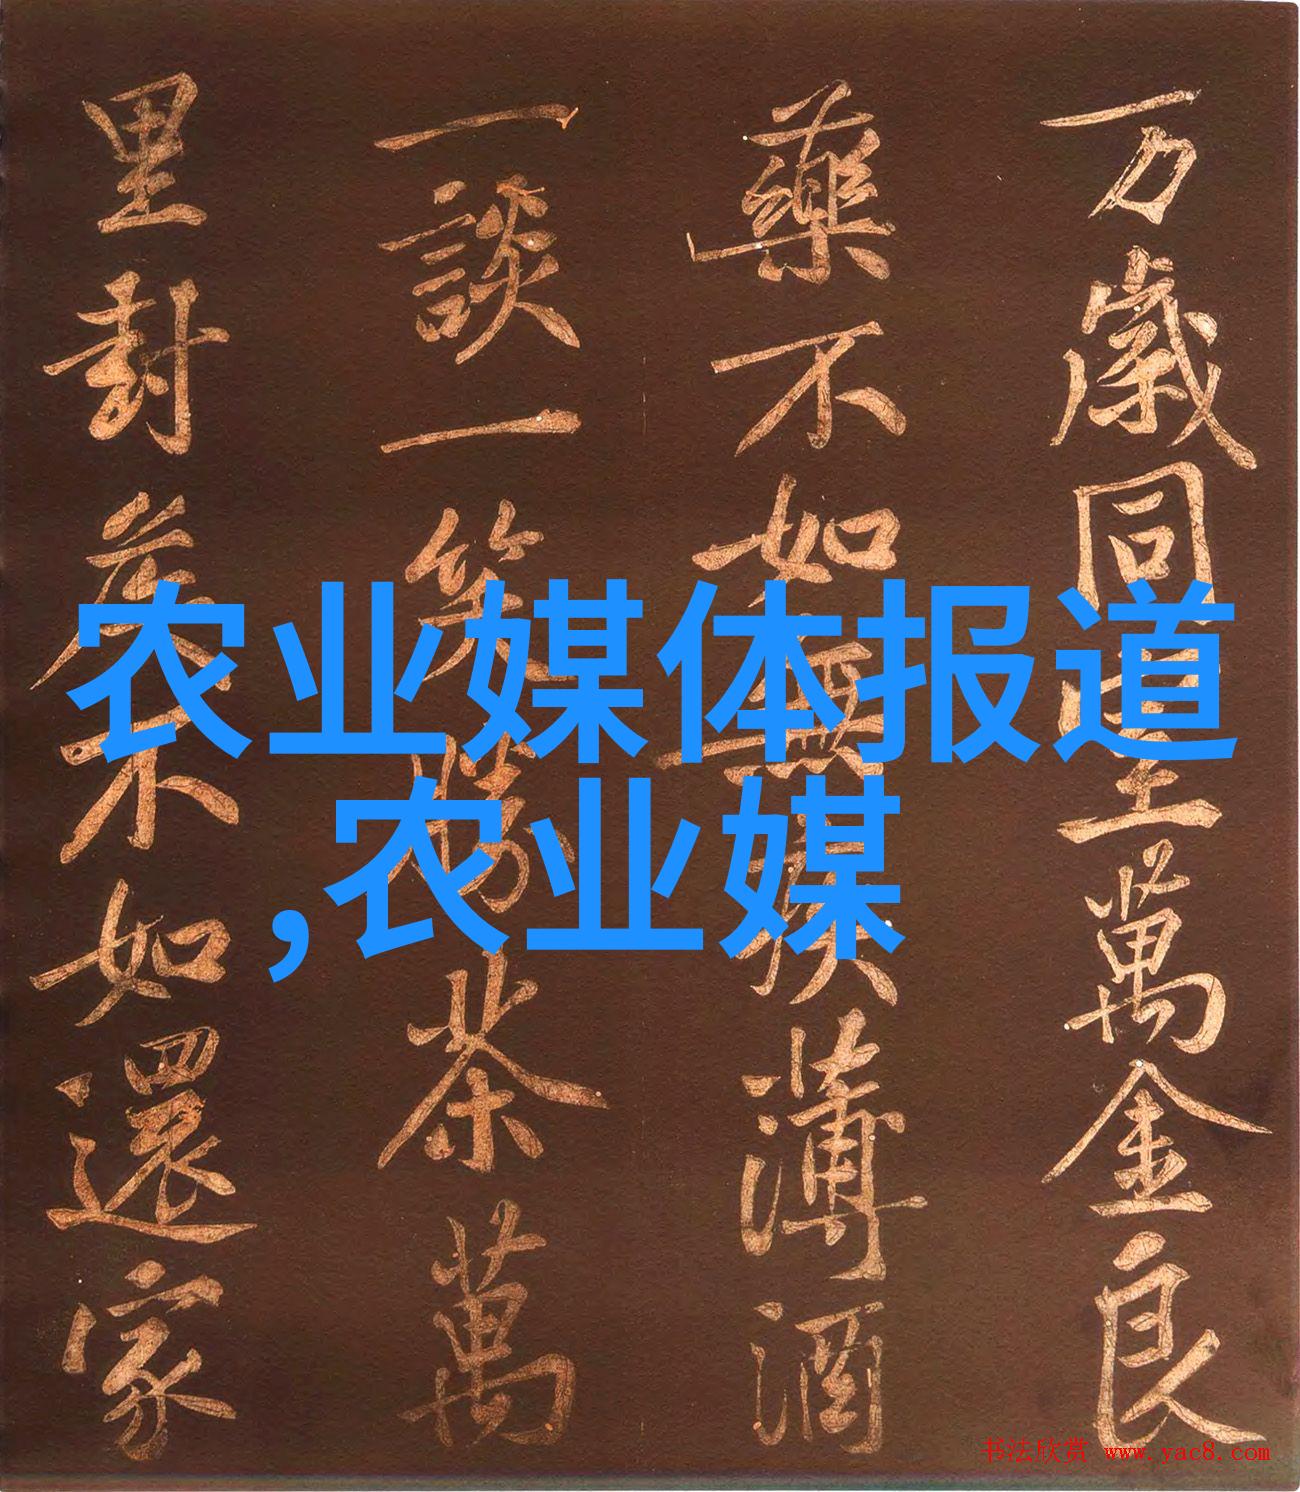 万歲同萬金良
藥不如無疾薄酒
一談一笑勝茶萬
里封矦不如還家
农业媒体报道
,农业媒
书法欣赏 www.yac8.com